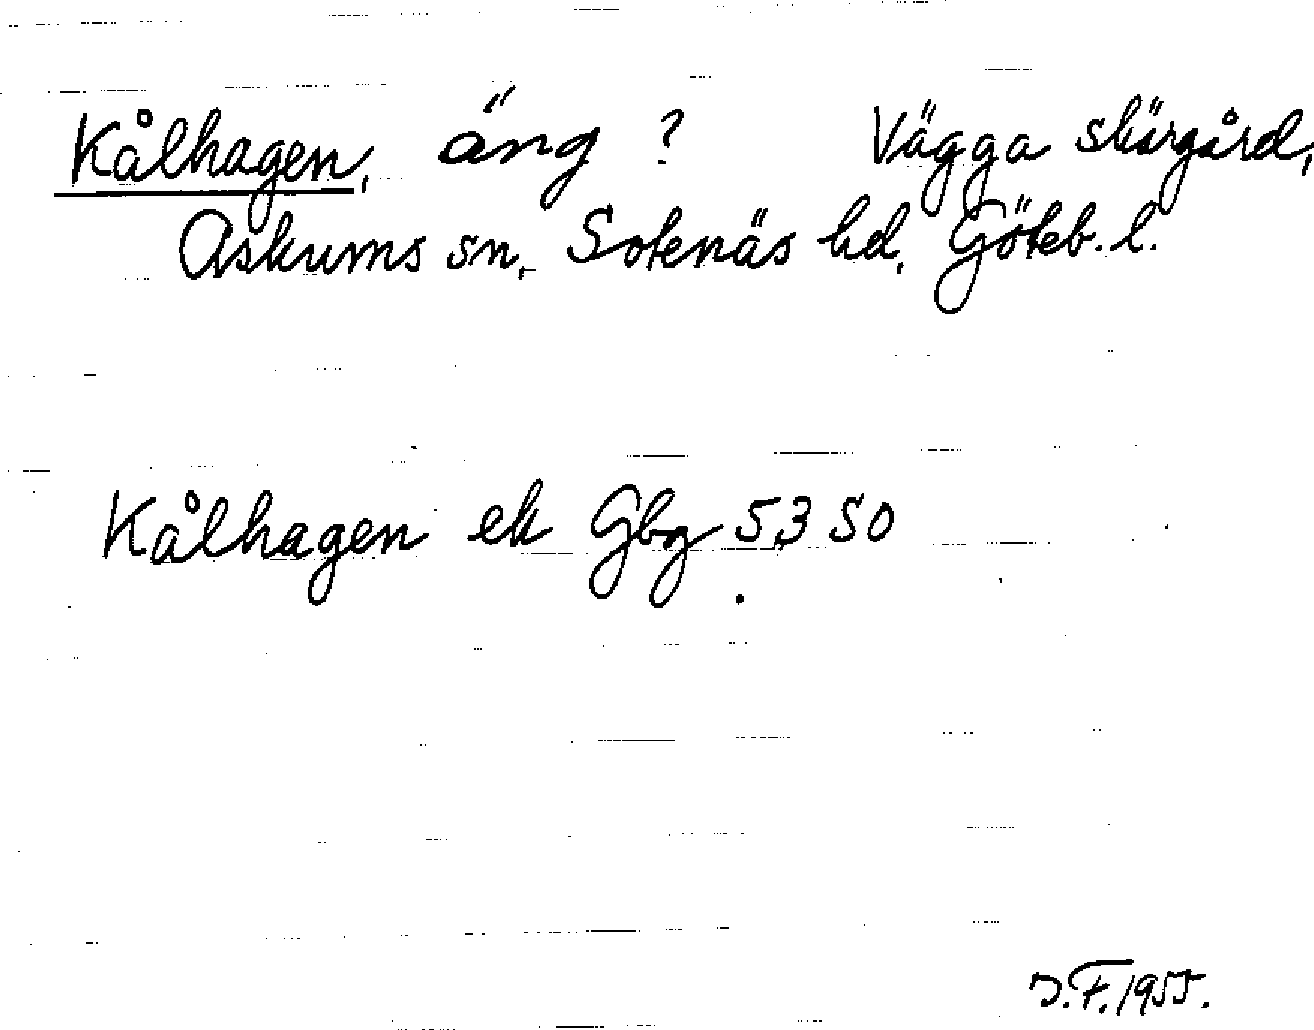 Kålhagen, äng ? Vägga skärgård,
Askums sn, Sotenäs hd, Göteb. l.
Kålhagen ek Gbg 53 SO
J.F. 1955.